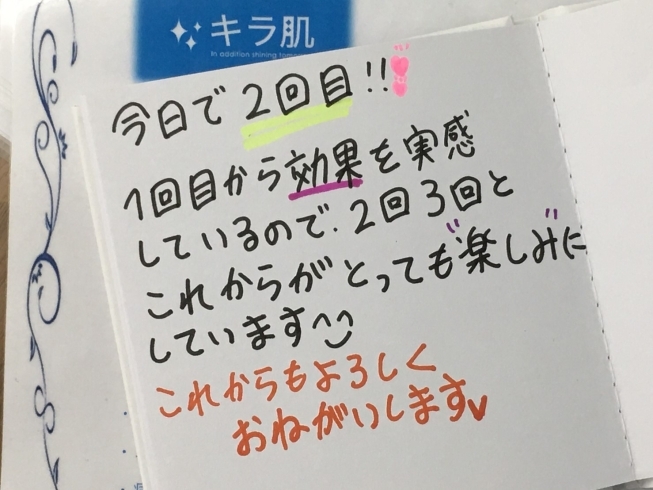 キラ肌
In addition shining
今日で2回目!!
1回目から効果を実感
しているので、2回3回と
これからがとっても"楽しみ"に
しています^^
これからもよろしく
おねがいします♥